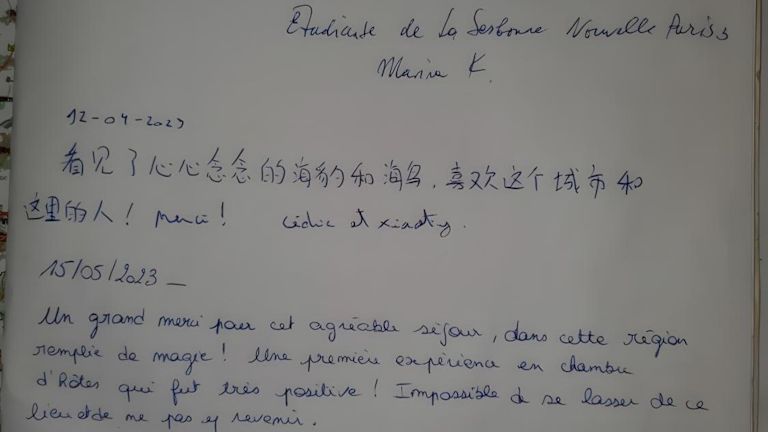 Etudiante de La Sorbonne Nouvelle Paris 3
Marina K.
12-04-2023
看见了心心念念的海豹和海鸟，喜欢这个城市和
这里的人！ Merci ! Cédric et
15/05/2023 _
Un grand merci pour cet agréable séjour, dans cette région
remplie de magie ! Une première expérience en chambre
d'hôtes qui fut très positive ! Impossible de se lasser de ce
lieu et de ne pas y revenir.